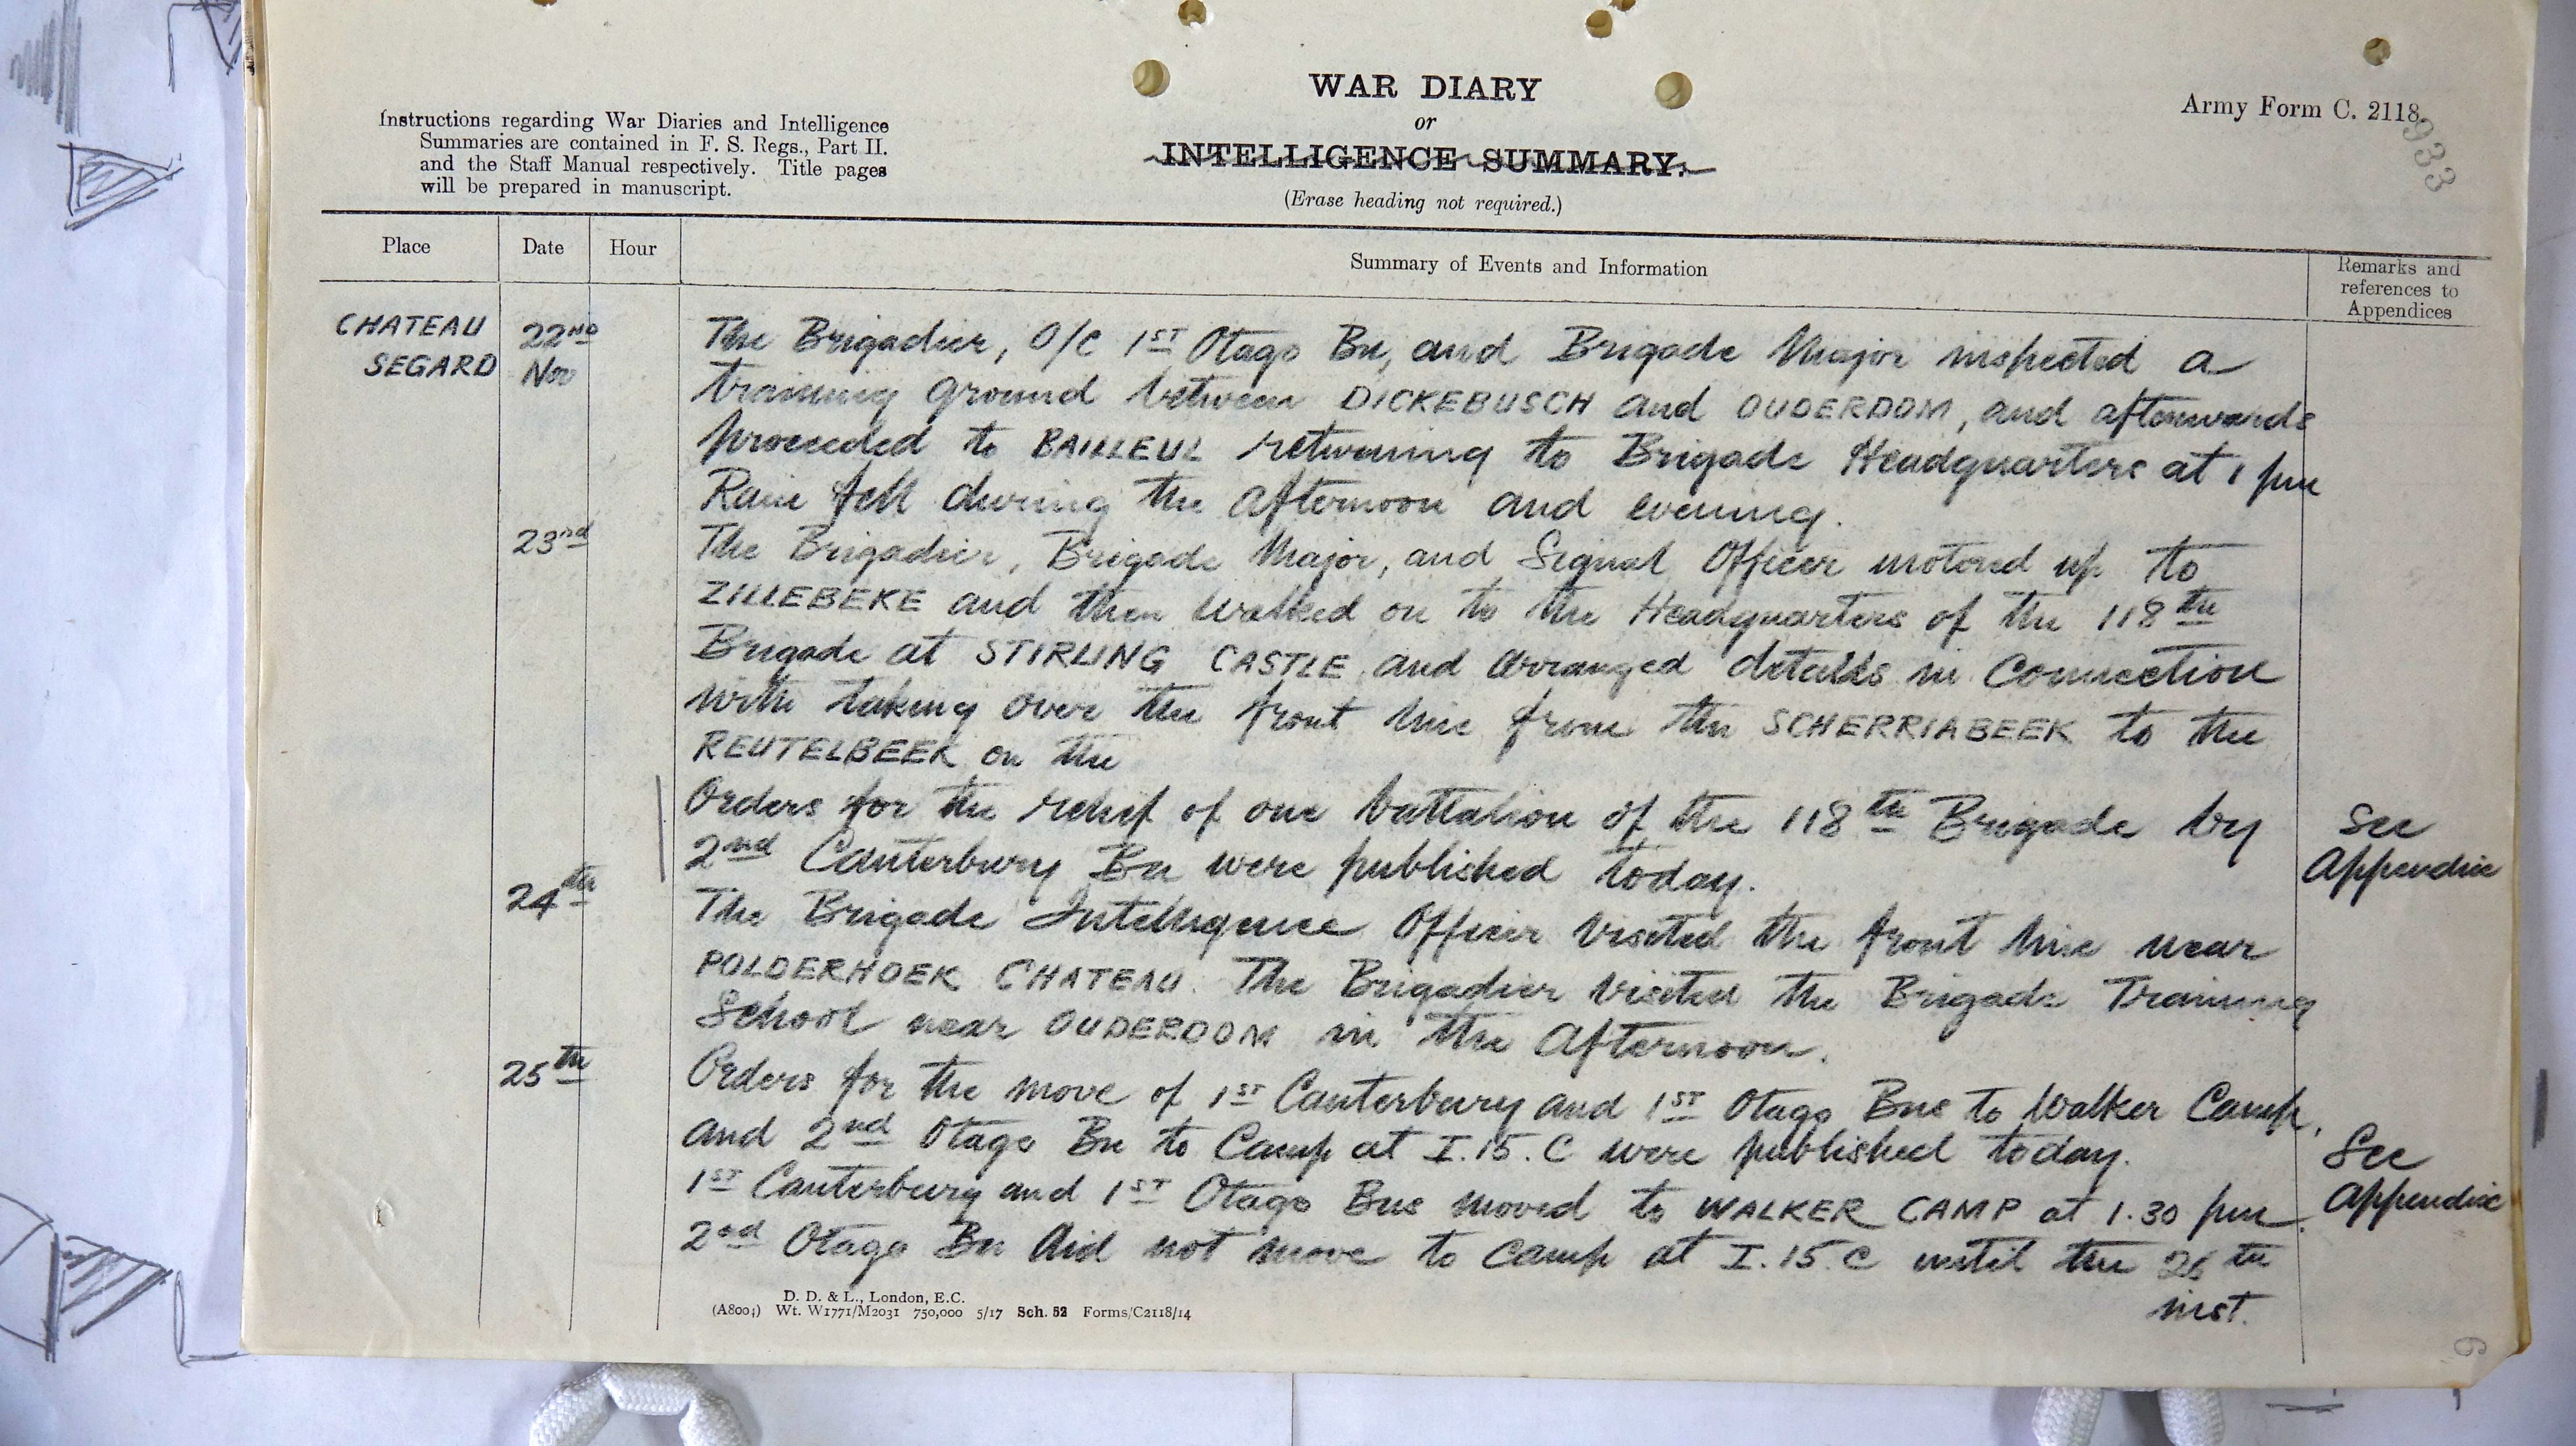 WAR DIARY
or
INTELLIGENCE SUMMARY.
(Erase heading not required.)
Instructions regarding War Diaries and Intelligence
Summaries are contained in F. S. Regs., Part II.
and the Staff Manual respectively. Title pages
will be prepared in manuscript.
Army Form C. 2118.
933
Place
Date
Hour
Summary of Events and Information
Remarks and
references to
Appendices
CHATEAU
SEGARD
22ND
Nov
The Brigadier, O/C 1ST Otago Bn, and Brigade Major inspected a
training ground between DICKEBUSCH and OUDERDOM, and afterwards
proceeded to BAILLEUL returning to Brigade Headquarters at 1 pm
Rain fell during the afternoon and evening.
23rd
The Brigadier, Brigade Major, and Signal Officer motored up to
ZILLEBEKE and then walked on to the Headquarters of the 118th
Brigade at STIRLING CASTLE and arranged details in connection
with taking over the front line from the SCHERRIABEEK to the
REUTELBEEK on the
Orders for the relief of one battalion of the 118th Brigade by
2nd Canterbury Bn were published today.
See
Appendix
24th
The Brigade Intelligence Officer visited the front line near
POLDERHOEK CHATEAU. The Brigadier visited the Brigade Training
School near OUDERDOM in the afternoon.
25th
Orders for the move of 1ST Canterbury and 1ST Otago Bns to Walker Camp,
and 2nd Otago Bn to Camp at I.15.C were published today.
See
Appendix
1ST Canterbury and 1ST Otago Bns moved to WALKER CAMP at 1.30 pm.
2nd Otago Bn did not move to camp at I.15.C until the 26th
inst.
D. D. & L., London, E.C.
(A800;) Wt. W1771/M2031 750,000 5/17 Sch. 52 Forms/C2118/14